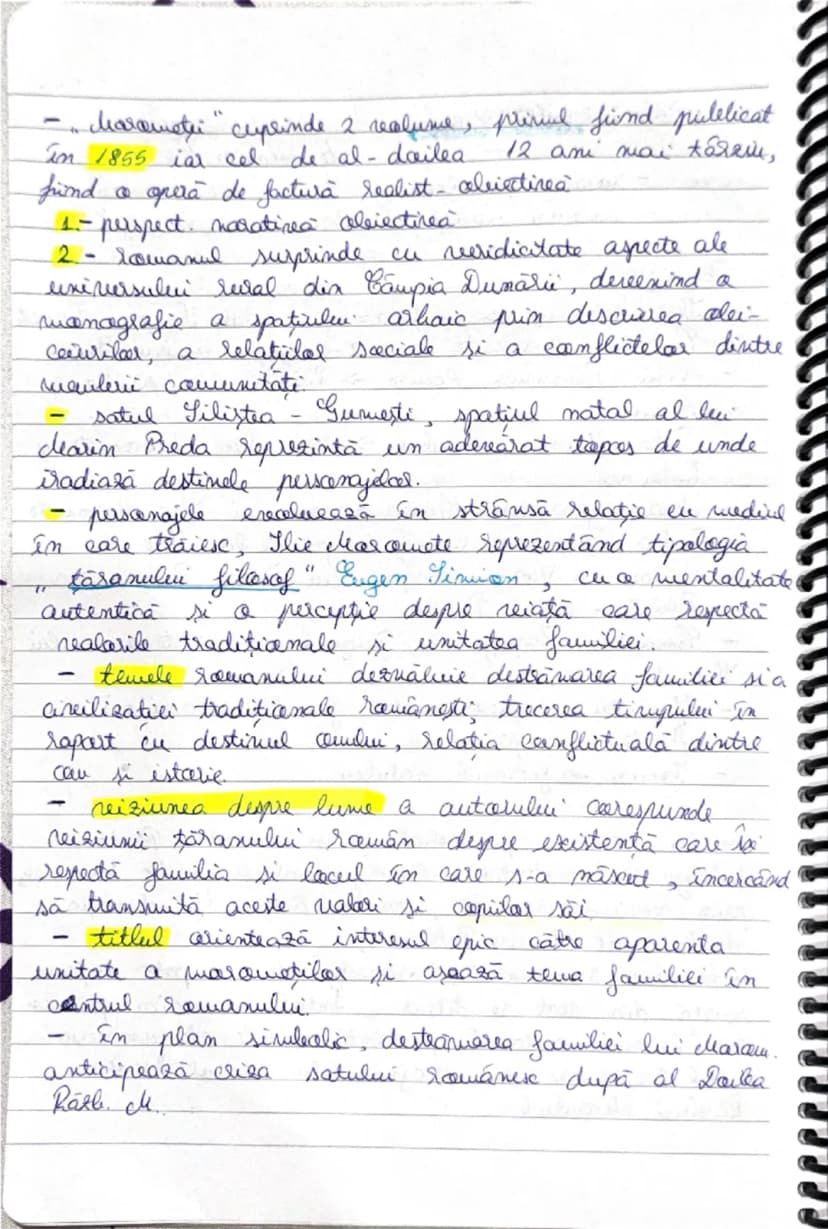 - „Moromeții" cuprinde 2 volume, primul fiind publicat
în 1855 iar cel de al-doilea 12 ani mai târziu,
fiind o operă de factură realist-obiectivă
1.- perspect. narativă obiectivă
2.- romanul surprinde cu veridicitate aspecte ale
universului rural din Câmpia Dunării, devenind o
monografie a spațiului arhaic prin descrierea obi-
ceiurilor, a relațiilor sociale și a conflictelor dintre
membrii comunități.
- satul Siliștea - Gumești, spațiul natal al lui
Marin Preda reprezintă un adevărat topos de unde
iradiază destinele personajelor.
- personajele evoluează în strânsă relație cu mediul
în care trăiesc, Ilie Moromete reprezentând tipologia
„țăranului filosof" Eugen Simion, cu o mentalitate
autentică și o percepție despre viață care respectă
valorile tradiționale și unitatea familiei.
- temele romanului dezvăluie destrămarea familiei și a
civilizației tradiționale românești; trecerea timpului în
raport cu destinul omului, relația conflictuală dintre
om și istorie.
- viziunea despre lume a autorului corespunde
viziunii țăranului român despre existență care își
repectă familia și locul în care s-a născut, încercând
să transmită aceste valori și copiilor săi
- titlul orientează interesul epic către aparenta
unitate a moromeților și așază tema familiei în
centrul romanului.
- în plan simbolic, destrămarea familiei lui Morom.
anticipează criza satului românesc după al Doilea
Răzb. M.